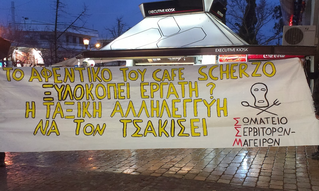 EXECUTIVE KIOSK
EXECUTIVE KIOSK
ΤΟ ΑΦΕΝΤΙΚΟ ΤΟΥ CAFE SCHERZO
ΞΥΛΟΚΟΠΕΙ ΕΡΓΑΤΗ?
Η ΤΑΞΙΚΗ ΑΛΛΗΛΕΓΓΥΗ
ΝΑ ΤΟΝ ΤΣΑΚΙΣΕΙ
ΣΩΜΑΤΕΙΟ
ΣΕΡΒΙΤΟΡΩΝ-
ΜΑΓΕΙΡΩΝ